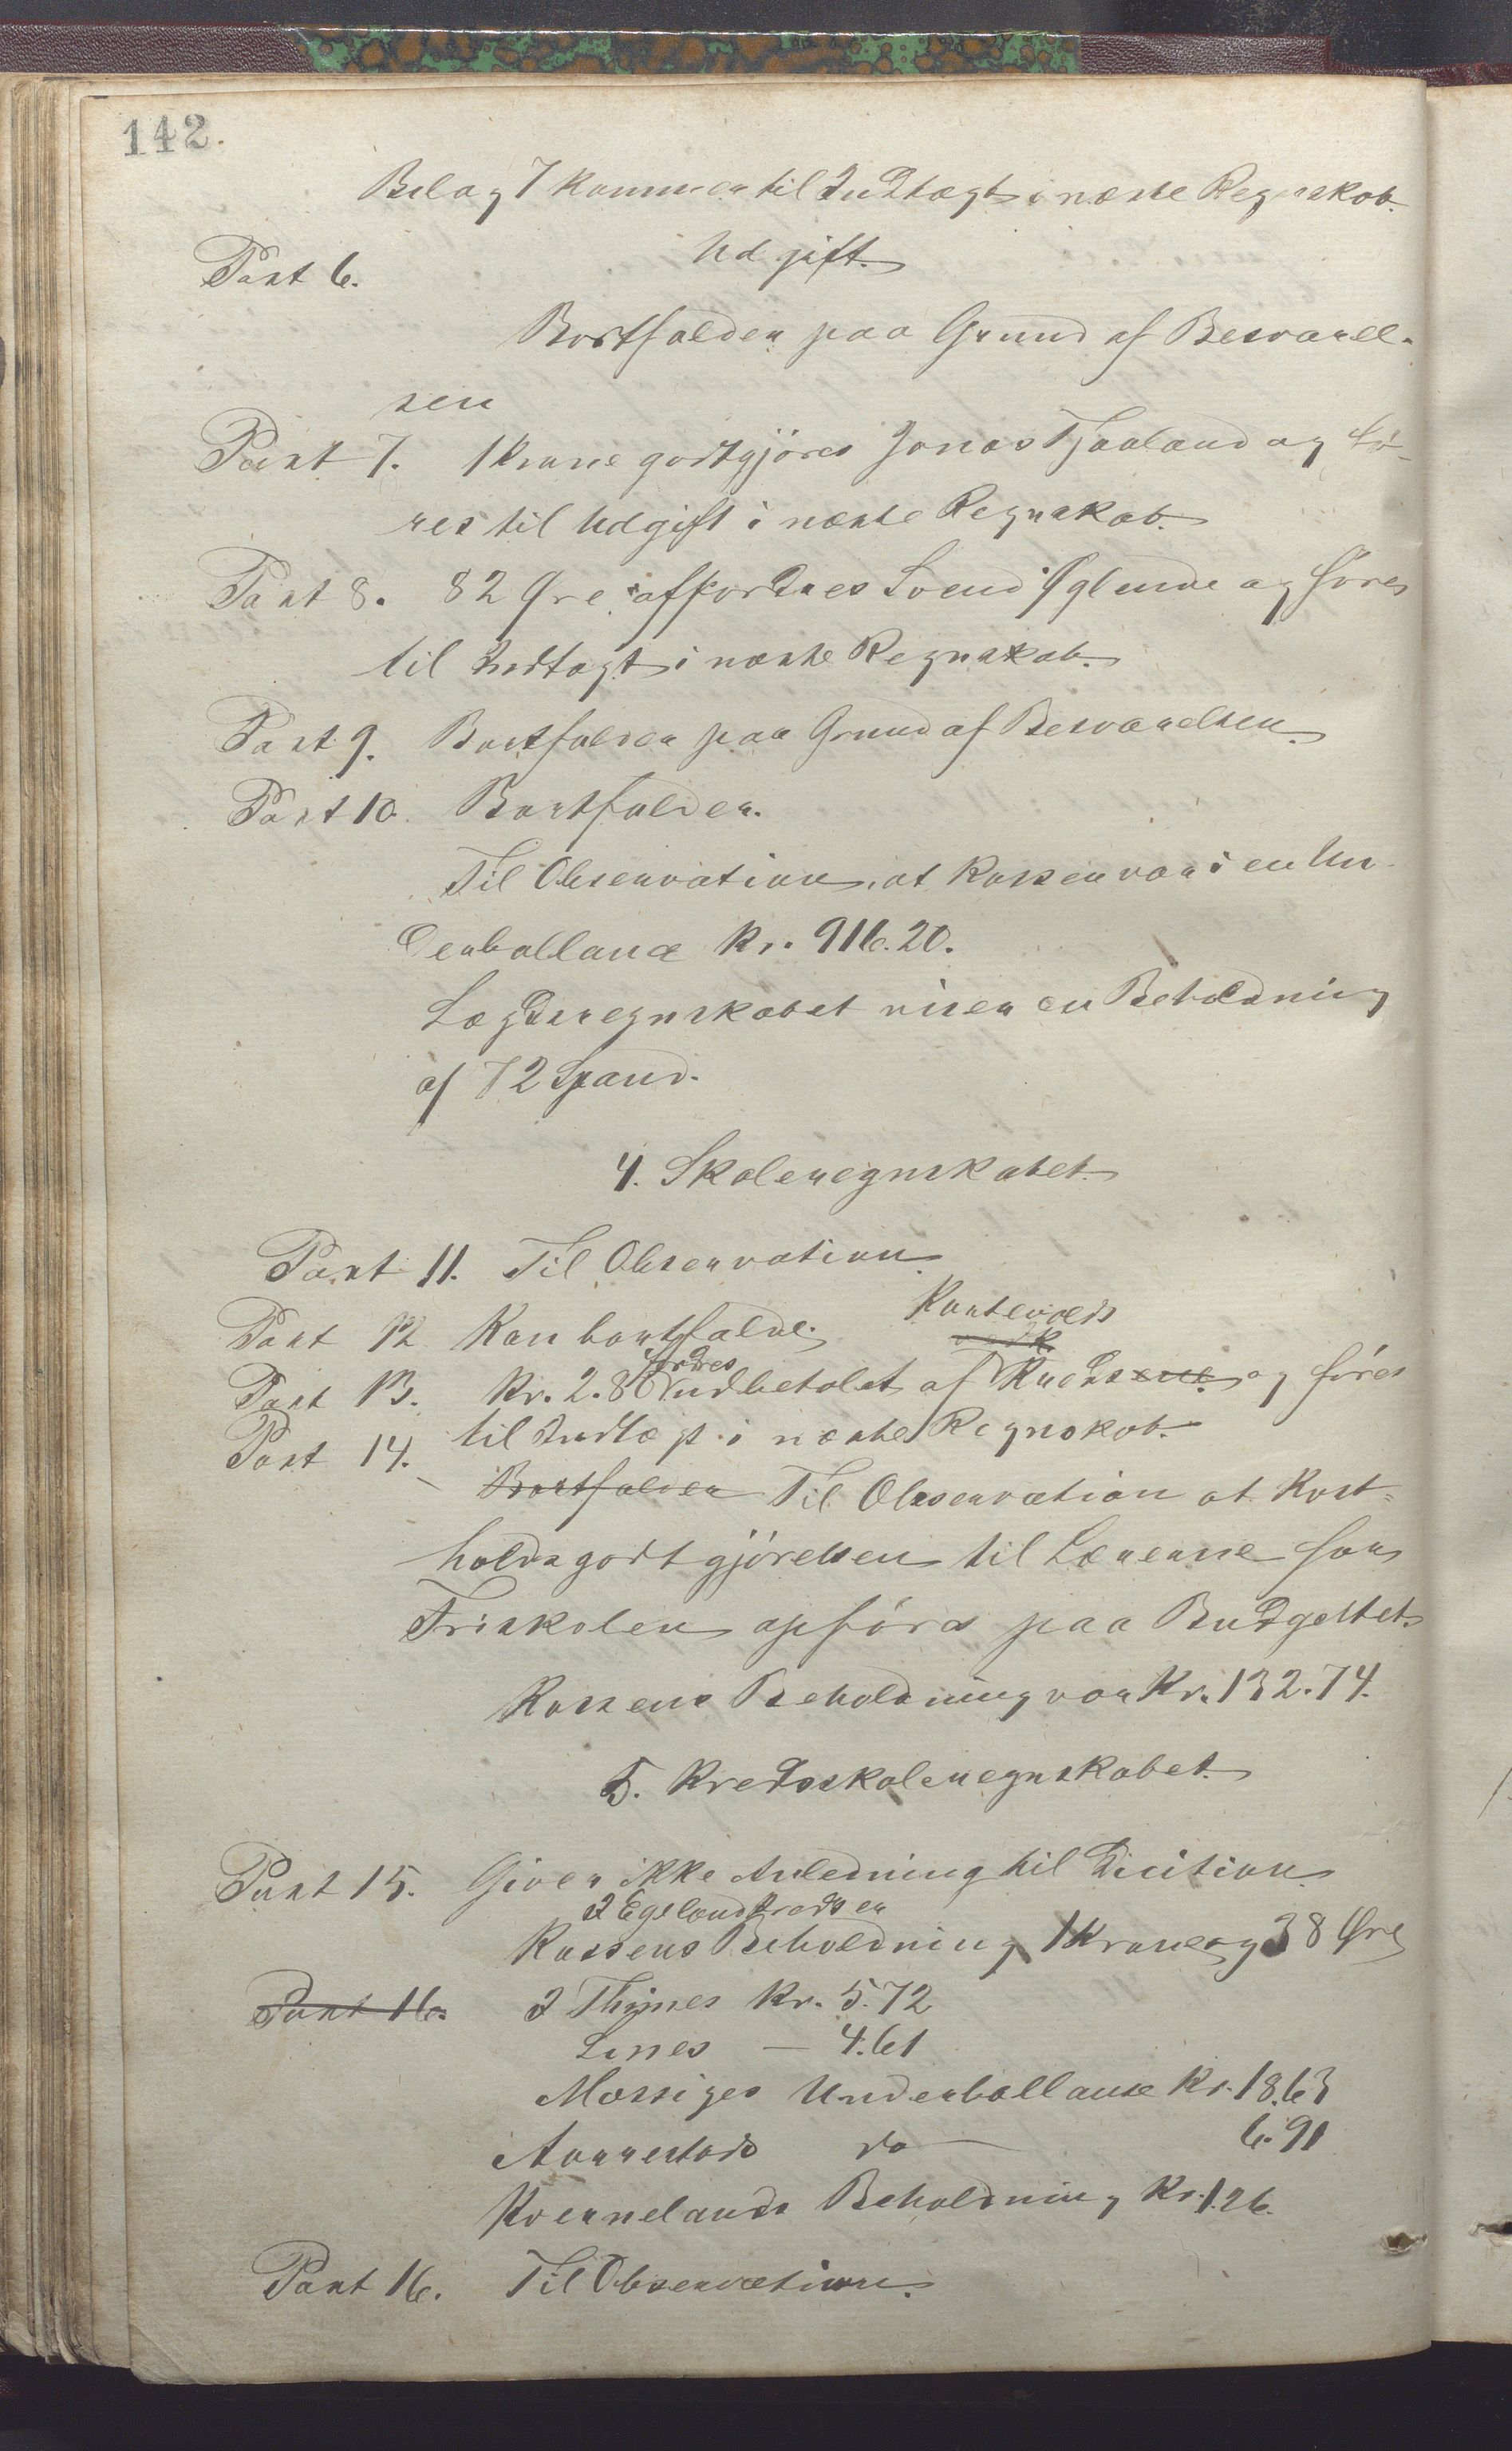 142.
Belag 7 kommer til Indtægt i næste Regnskab.
Udgift.
Post 6.
Bortfalder paa Grund af Besvarel-
sen
Post 7. 1 Krone godtgjöres Jonas Tjaaland og fö-
res til Udgift i næste Regnskab.
Post 8. 82 Øre affordres Svend og föres
til Indtægt i næste Regnskab.
Post 9. Bortfalder paa Grund af Besvarelsen.
Post 10. Bortfalder.
Til Observation, at Kassen var i en Un-
derballance Kr. 916.20.
Lægdsregnskabet viser en Beholdning
af 72 Spand.
4. Skoleregnskabet.
Post 11. Til Observation.
Post 12 Kan bortfalde.
Post 13. Kr. 2.80 fordres indbetalt af Kuds og föres
Post 14. til Indtægt i næste Regnskab.
Bortfalder Til Observation at Kost-
holdsgodtgjörelsen til Lærerne for
Friskolen opföres paa Budgettet.
Kassens Beholdning var Kr. 132.74.
5. Kredsskoleregnskabet.
Post 15. Giver ikke Anledning til Decition.
I Egelandskredsen
Kassens Beholdning 1 Krone og 38 Øre
Post 16. I Thimes Kr. 5.72
Lines — 4.61
Mossiges Underballanse Kr. 18.63
Aarrestads do — 6.91
Kvernelands Beholdning Kr. 1.26.
Post 16. Til Observation.